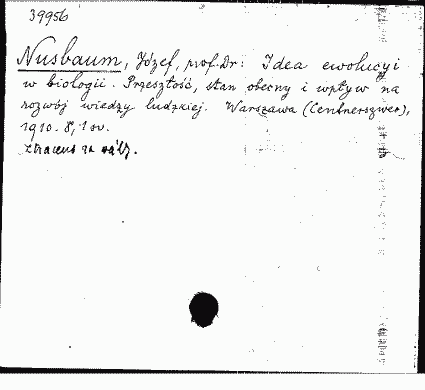 39956
Nusbaum, Józef, prof. Dr: Idea ewolucyi
w biologii. Przeszłość, stan obecny i wpływ na
rozwój wiedzy ludzkiej. Warszawa (Centnerszwer),
1910. 8, 1 sv.